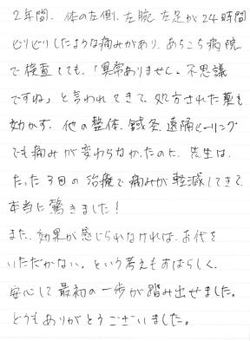 2年間、体の左側、左腕、左足が24時間
じりじりしたような痛みがあり、あちこち病院
で検査しても、「異常ありません。不思議
ですね」と言われてきて、処方された薬も
効かず、他の整体、鍼灸、遠隔ヒーリング
でも痛みが変わらなかったのに、先生は、
たった3回の治療で痛みが軽減してきて
本当に驚きました！
また、効果が感じられなければ、お代を
いただかない。という考えもすばらしく、
安心して最初の一歩が踏み出せました。
どうもありがとうございました。